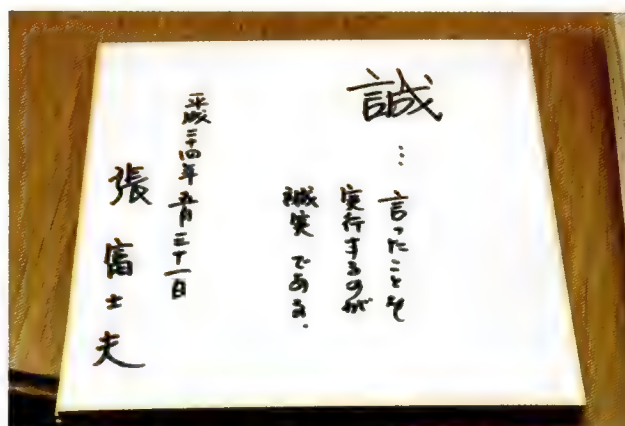 誠
…言ったことを
実行するのが
誠実である.
平成二十四年五月三十一日
張富士夫